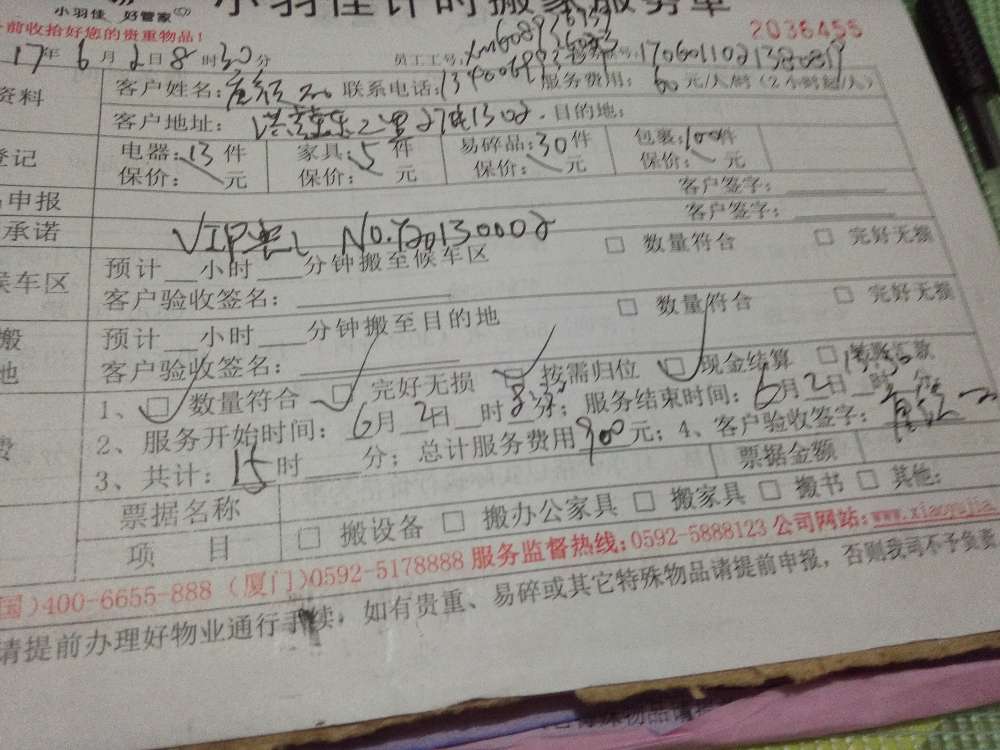 小羽佳 好管家
小羽佳计时搬家服务单
前收拾好您的贵重物品!
2036455
17年6月2日8时30分 员工工号: 号:1706011021380819
资料 客户姓名: 联系电话: 服务费用:60元/人/时(2小时起/人)
客户地址: 目的地:
登记 电器:13件 家具:5件 易碎品:30件 包裹:100件
保价: 元 保价: 元 保价: 元 保价: 元
申报 客户签字:
承诺 客户签字:
VIP No.
候车区 预计 小时 分钟搬至候车区 □ 数量符合 □ 完好无损
客户验收签名:
搬 预计 小时 分钟搬至目的地 □ 数量符合 □ 完好无损
地 客户验收签名:
1、□ 数量符合 □ 完好无损 □ 按需归位 □ 现金结算 □
费 2、服务开始时间:6月2日 时 分;服务结束时间:6月2日 时 分
3、共计:15时 分;总计服务费用900元;4、客户验收签字:
票据名称 票据金额
项 目 □ 搬设备 □ 搬办公家具 □ 搬家具 □ 搬书 □ 其他:
国)400-6655-888 (厦门)0592-5178888 服务监督热线:0592-5888123 公司网站:www.xiaoyujia
请提前办理好物业通行手续,如有贵重、易碎或其它特殊物品请提前申报,否则我司不予负责